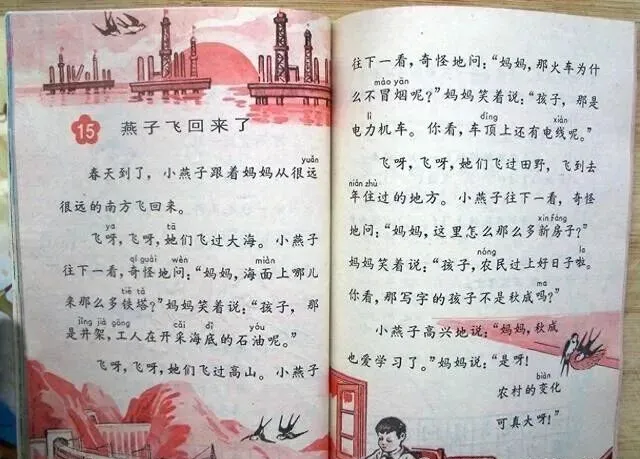 15 燕子飞回来了
yuǎn
春天到了，小燕子跟着妈妈从很远
很远的南方飞回来。
ya tā
飞呀，飞呀，她们飞过大海。小燕子
qí guài wèn miàn
往下一看，奇怪地问：“妈妈，海面上哪儿
tiě tǎ
来那么多铁塔？”妈妈笑着说：“孩子，那
jǐng jià gōng cǎi dǐ yóu
是井架，工人在开采海底的石油呢。”
飞呀，飞呀，她们飞过高山。小燕子
往下一看，奇怪地问：“妈妈，那火车为什
mào yān
么不冒烟呢？”妈妈笑着说：“孩子，那是
lì dǐng xiàn
电力机车。你看，车顶上还有电线呢。”
飞呀，飞呀，她们飞过田野，飞到去
nián zhù
年住过的地方。小燕子往下一看，奇怪
xīn fáng
地问：“妈妈，这里怎么那么多新房子？”
nóng la
妈妈笑着说：“孩子，农民过上好日子啦。
你看，那写字的孩子不是秋成吗？”
小燕子高兴地说：“妈妈，秋成
也爱学习了。”妈妈说：“是呀！
biàn
农村的变化
可真大呀！”